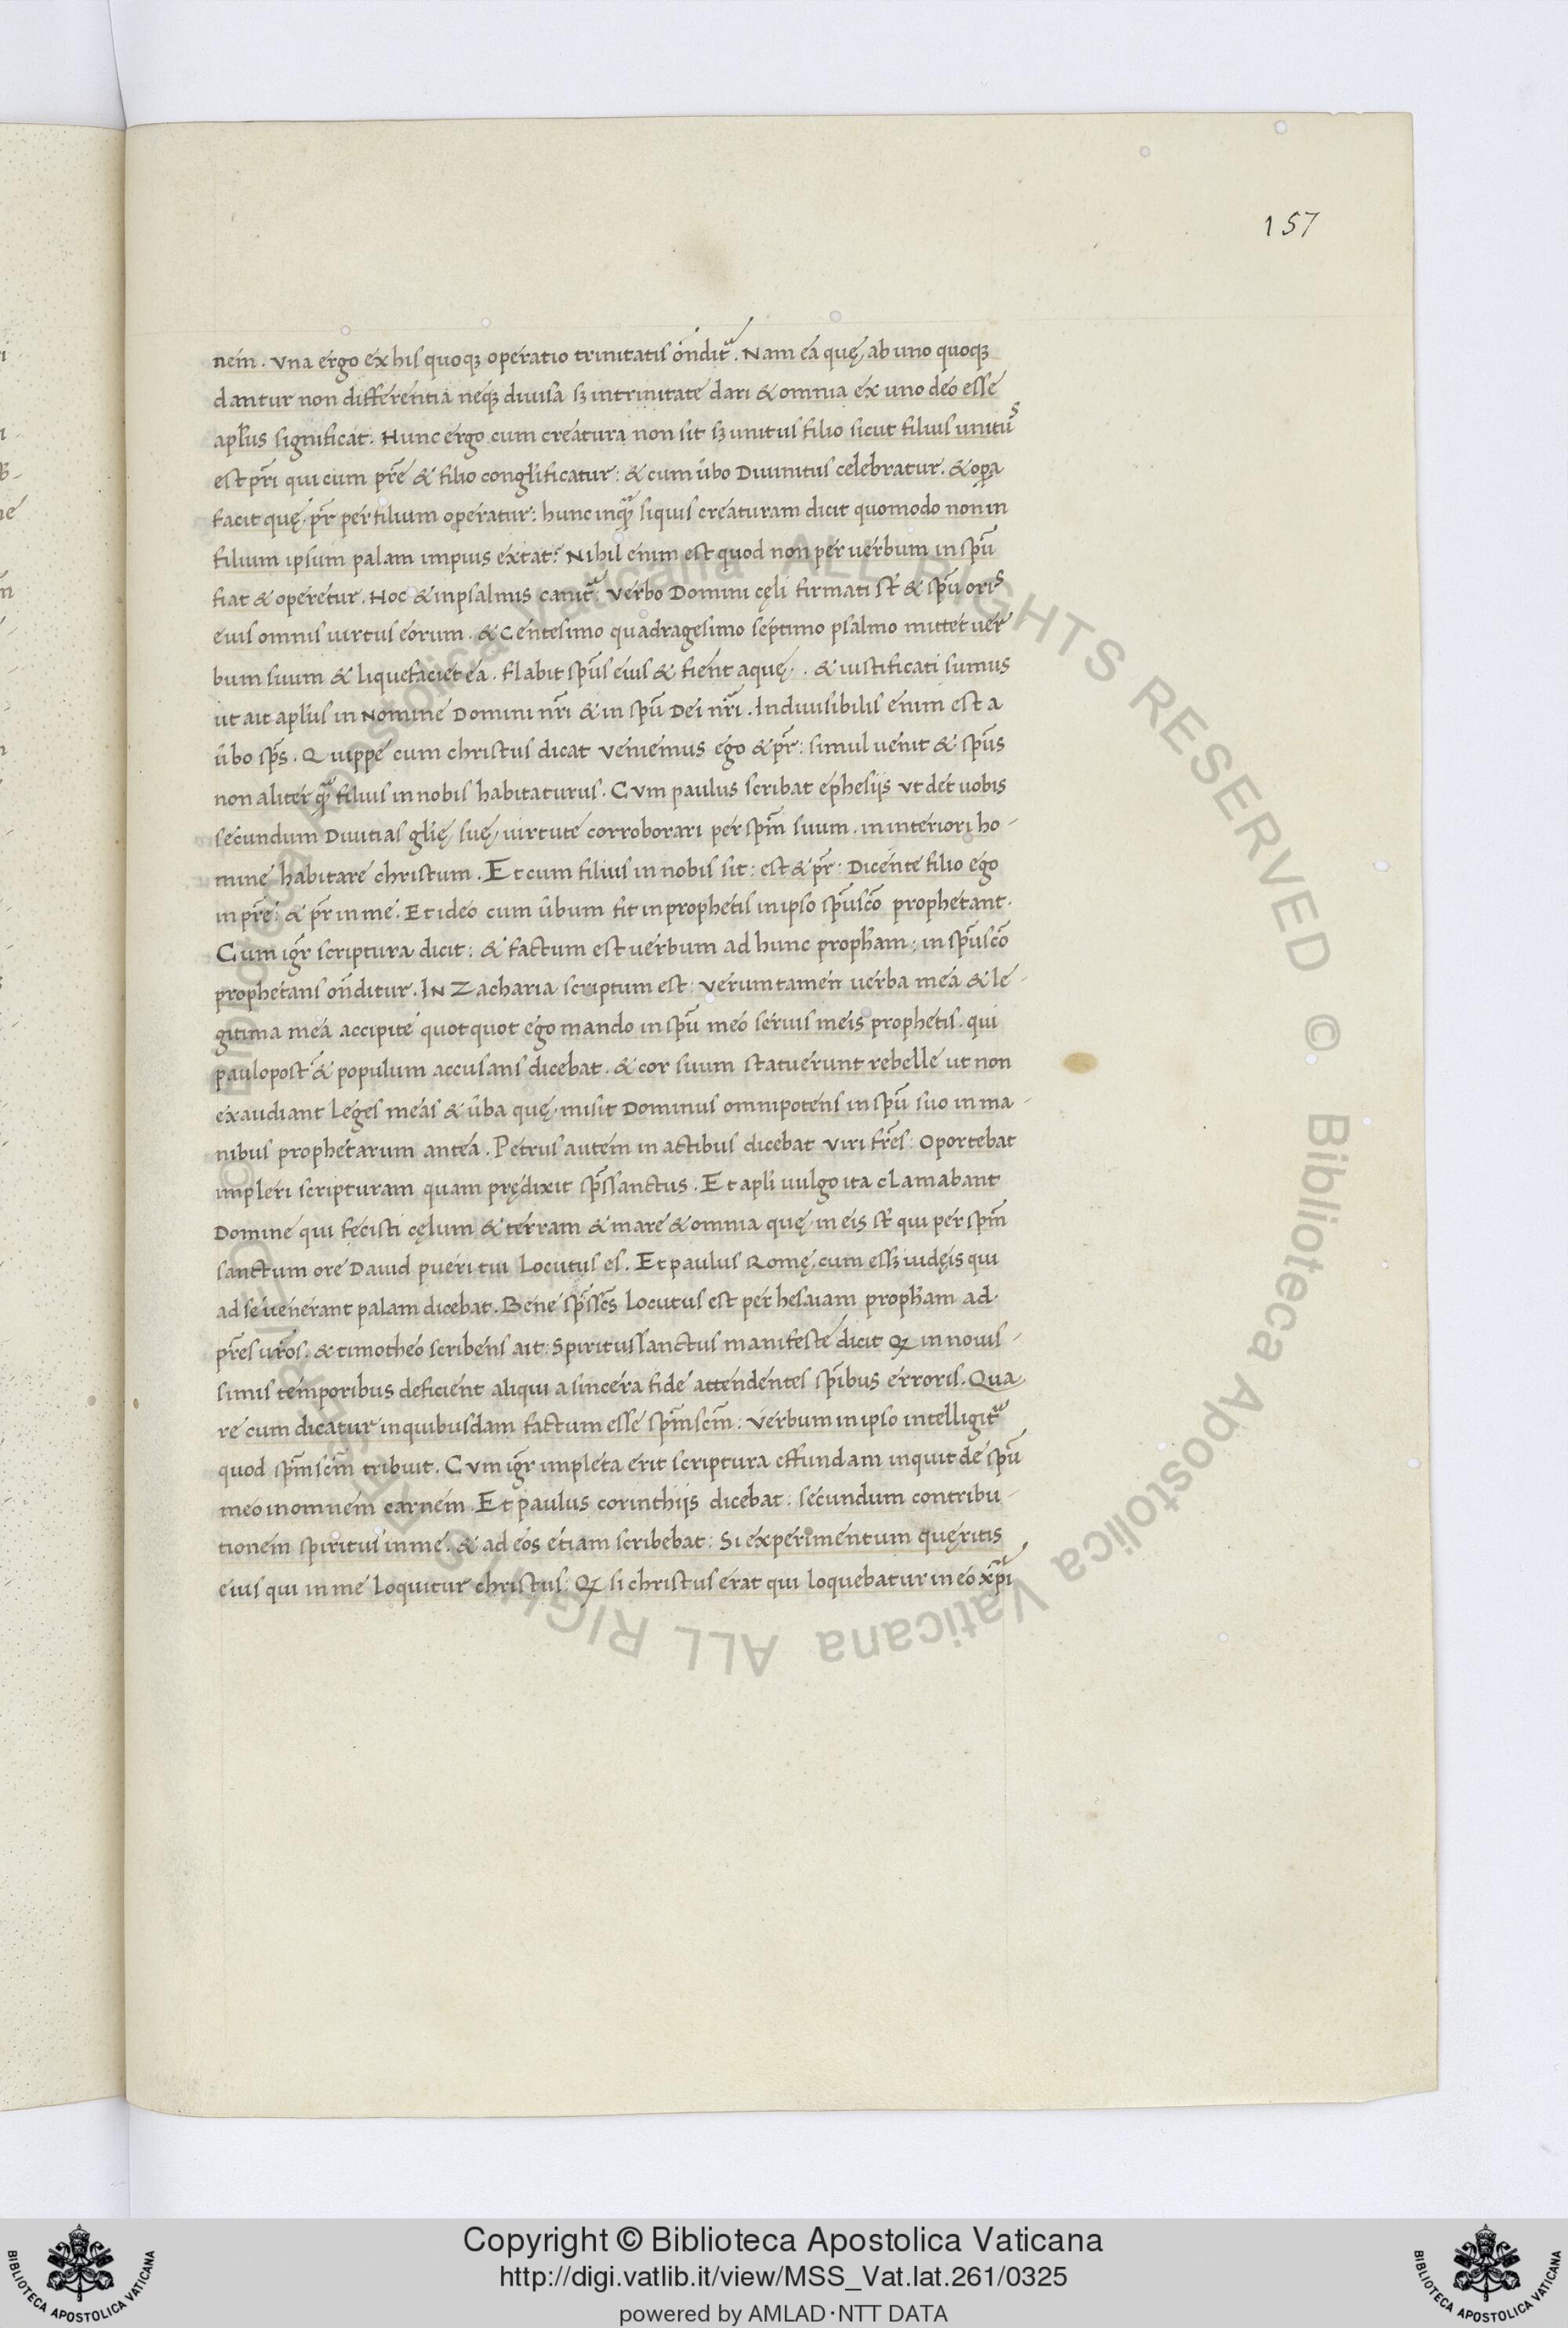 157
nem. Vna ergo ex his quoqꝫ operatio trinitatis on̄ditᷣ. Nam ea quę ab uno quoqꝫ
dantur non differentia neqꝫ diuisa sꝫ in trinitate dari & omnia ex uno deo esse
apl̄us significat. Hunc ergo cum creatura non sit sꝫ unitus filio sicut filius unitus
est pr̄i qui cum pr̄e & filio congl̄ificatur: & cum ūbo Diuinitus celebratur. & oꝑa
facit quę pr̄ per filium operatur: hunc inqͣꝫ siquis creaturam dicit quomodo non in
filium ipsum palam impius extat? Nihil enim est quod non per uerbum in spū
fiat & operetur. Hoc & in psalmis canitᷣ: verbo Domini cęli firmati sf̄ & spū oris
eius omnis uirtus eorum. & Centesimo quadragesimo septimo psalmo mittet uer
bum suum & liquefaciet ea. flabit spūs eius & fient aquę. & iustificati sumus
ut ait apl̄us in Nomine Domini nr̄i & in spū Dei nr̄i. Indiuisibilis enim est a
ūbo sp̄s. Quippe cum christus dicat veniemus ego & pr̄: simul uenit & spūs
non aliter qͣꝫ filius in nobis habitaturus. Cvm paulus scribat ephesijs vt det uobis
secundum Diuitias gl̄ię suę uirtute corroborari per spm̄ suum. in interiori ho-
mine habitare christum. Et cum filius in nobis sit: est & pr̄: Dicente filio ego
in pr̄e: & pr̄ in me. Et ideo cum ūbum fit in prophetis in ipso spūscō prophetant.
Cum igr̄ scriptura dicit: & factum est uerbum ad hunc proph̄am: in spūscō
prophetans on̄ditur. In Zacharia scriptum est: verumtamen uerba mea & le-
gitima mea accipite quotquot ego mando in spū meo seruis meis prophetis. qui
paulopost & populum accusans dicebat. & cor suum statuerunt rebelle ut non
exaudiant leges meas & ūba quę misit Dominus omnipotens in spū suo in ma-
nibus prophetarum antea. Petrus autem in actibus dicebat viri fr̄es: Oportebat
impleri scripturam quam prędixit sp̄ssanctus. Et apl̄i uulgo ita clamabant
Domine qui fecisti cęlum & terram & mare & omnia quę in eis sf̄ qui per spm̄
sanctum ore Dauid pueri tui locutus es. Et paulus Romę cum essꝫ iudęis qui
ad se uenerant palam dicebat. Bene sp̄sscs̄ locutus est per hesaiam proph̄am ad
pr̄es ur̄os. & timotheo scribens ait: Spiritussanctus manifeste dicit Qꝫ in nouis-
simis temporibus deficient aliqui a sincera fide attendentes sp̄ibus erroris. Qua
re cum dicatur in quibusdam factum esse spm̄scm̄: verbum in ipso intelligitᷣ
quod spm̄scm̄ tribuit. Cvm igr̄ impleta erit scriptura effundam inquit de spū
meo in omnem carnem. Et paulus corinthijs dicebat: secundum contribu-
tionem spiritus in me. & ad eos etiam scribebat: Si experimentum quęritis
eius qui in me loquitur christus: Qꝫ si christus erat qui loquebatur in eo xp̄i
Copyright © Biblioteca Apostolica Vaticana
http://digi.vatlib.it/view/MSS_Vat.lat.261/0325
powered by AMLAD·NTT DATA
BIBLIOTECA APOSTOLICA VATICANA
BIBLIOTECA APOSTOLICA VATICANA